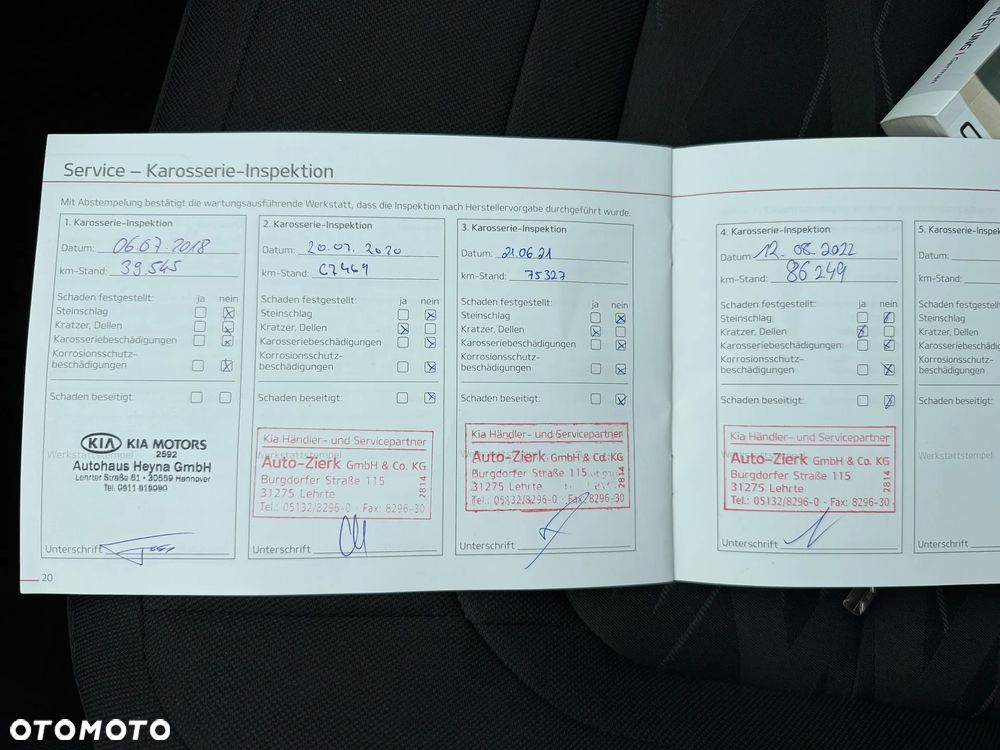 ANLEITUNG | German
Service – Karosserie-Inspektion
Mit Abstempelung bestätigt die wartungsausführende Werkstatt, dass die Inspektion nach Herstellervorgabe durchgeführt wurde.
1. Karosserie-Inspektion
Datum: 06.07.2018
km-Stand: 39.545
Schaden festgestellt: ja nein
Steinschlag
Kratzer, Dellen
Karosseriebeschädigungen
Korrosionsschutz-
beschädigungen
Schaden beseitigt:
KIA KIA MOTORS
2592
Werkstattstempel
Autohaus Heyna GmbH
Lehrter Straße 61 · 30559 Hannover
Unterschrift
2. Karosserie-Inspektion
Datum: 20.07.2020
km-Stand: 67469
Schaden festgestellt: ja nein
Steinschlag
Kratzer, Dellen
Karosseriebeschädigungen
Korrosionsschutz-
beschädigungen
Schaden beseitigt:
Kia Händler- und Servicepartner
Auto-Zierk GmbH & Co. KG
Burgdorfer Straße 115
31275 Lehrte
Tel.: 05132/8296-0 · Fax: 8296-30
2814
Unterschrift
3. Karosserie-Inspektion
Datum: 21.06.21
km-Stand: 75327
Schaden festgestellt: ja nein
Steinschlag
Kratzer, Dellen
Karosseriebeschädigungen
Korrosionsschutz-
beschädigungen
Schaden beseitigt:
Kia Händler- und Servicepartner
Auto-Zierk GmbH & Co. KG
Burgdorfer Straße 115
31275 Lehrte
Tel.: 05132/8296-0 · Fax: 8296-30
2814
Unterschrift
4. Karosserie-Inspektion
Datum: 12.08.2022
km-Stand: 86249
Schaden festgestellt: ja nein
Steinschlag
Kratzer, Dellen
Karosseriebeschädigungen
Korrosionsschutz-
beschädigungen
Schaden beseitigt:
Kia Händler- und Servicepartner
Auto-Zierk GmbH & Co. KG
Burgdorfer Straße 115
31275 Lehrte
Tel.: 05132/8296-0 · Fax: 8296-30
2814
Unterschrift
5. Karosserie-Insp
Datum:
km-Stand:
Schaden festgestellt
Steinschlag
Kratzer, Dellen
Karosseriebeschädig
Korrosionsschutz-
beschädigungen
Schaden beseitigt:
Unterschrift
20
OTOMOTO